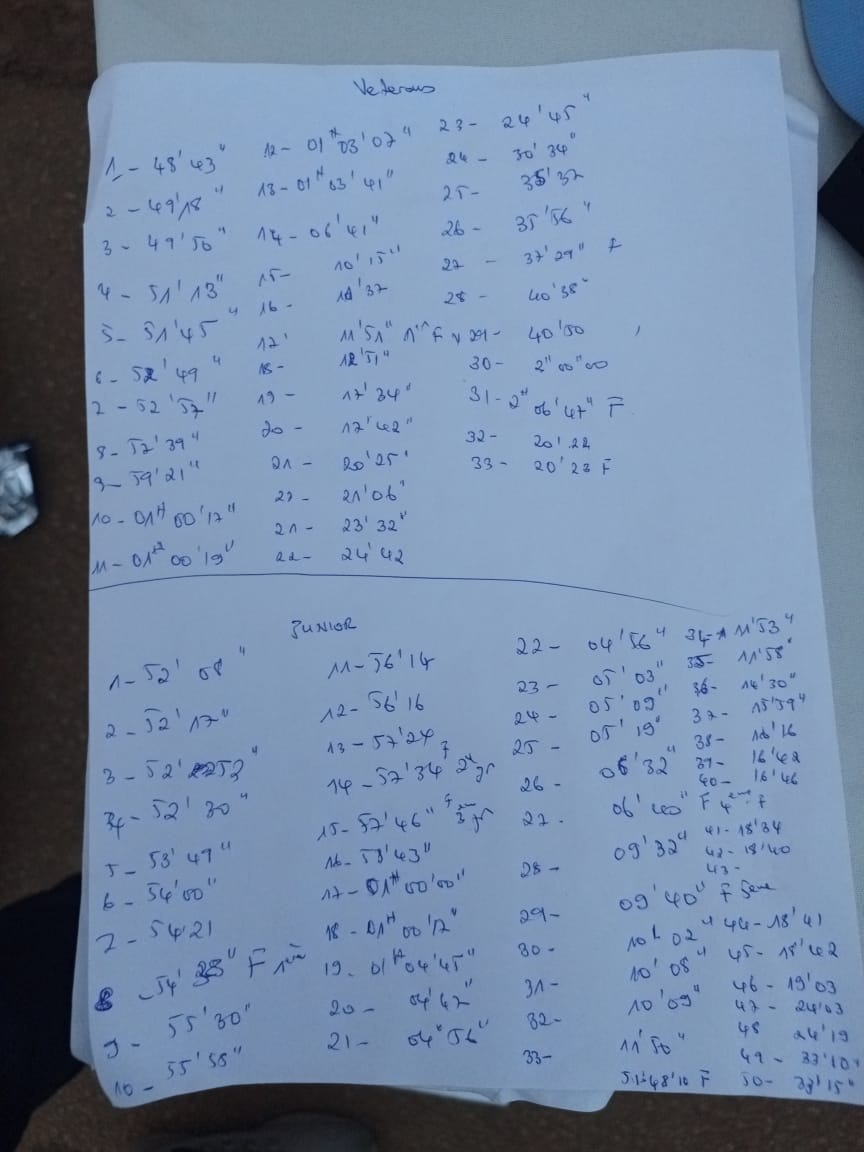 Veterans
1 - 48' 43"
2 - 49' 18"
3 - 49' 50"
4 - 51' 13"
5 - 51' 45"
6 - 52' 49"
7 - 52' 57"
8 - 57' 39"
9 - 59' 21"
10 - 01H 00' 17"
11 - 01H 00' 19"
12 - 01H 03' 07"
13 - 01H 03' 41"
14 - 06' 41"
15 - 10' 15"
16 - 11' 37
17' 11' 51" 1ère F
18 - 12' 51"
19 - 17' 34"
20 - 17' 42"
21 - 20' 25'
22 - 21' 06"
21 - 23' 32"
22 - 24' 42
23 - 24' 45"
24 - 30' 34"
25 - 35' 37
26 - 35' 56"
27 - 37' 29" F
28 - 40' 38"
29 - 40' 50
30 - 2H 00' 00
31 - 2H 06' 47" F
32 - 20' 22
33 - 20' 23 F
JUNIOR
1 - 52' 08"
2 - 52' 17"
3 - 52' 252"
4 - 52' 30"
5 - 53' 49"
6 - 54' 00"
7 - 54' 21
8 - 54' 23" F 1ère
9 - 55' 30"
10 - 55' 58"
11 - 56' 14
12 - 56' 16
13 - 57' 24
14 - 57' 34"
15 - 57' 46"
16 - 58' 43"
17 - 01H 00' 00"
18 - 01H 00' 17"
19 - 01H 04' 45"
20 - 04' 47"
21 - 04" 56"
22 - 04' 56"
23 - 05' 03"
24 - 05' 09"
25 - 05' 19"
26 - 06' 32"
27 - 06' 40" F 4ème F
28 - 09' 32"
29 - 09' 40" F 5ème
30 - 10' 02"
31 - 10' 08"
32 - 10' 09"
33 - 11' 50"
34 - 11' 53"
35 - 11' 58"
36 - 14' 30"
37 - 15' 59"
38 - 16' 16
39 - 16' 42
40 - 16' 46
41 - 18' 34
42 - 18' 40
43 -
44 - 18' 41
45 - 18' 42
46 - 19' 03
47 - 24' 03
48 24' 19
49 - 33' 10"
50 - 33' 15"
51 - 48' 10 F